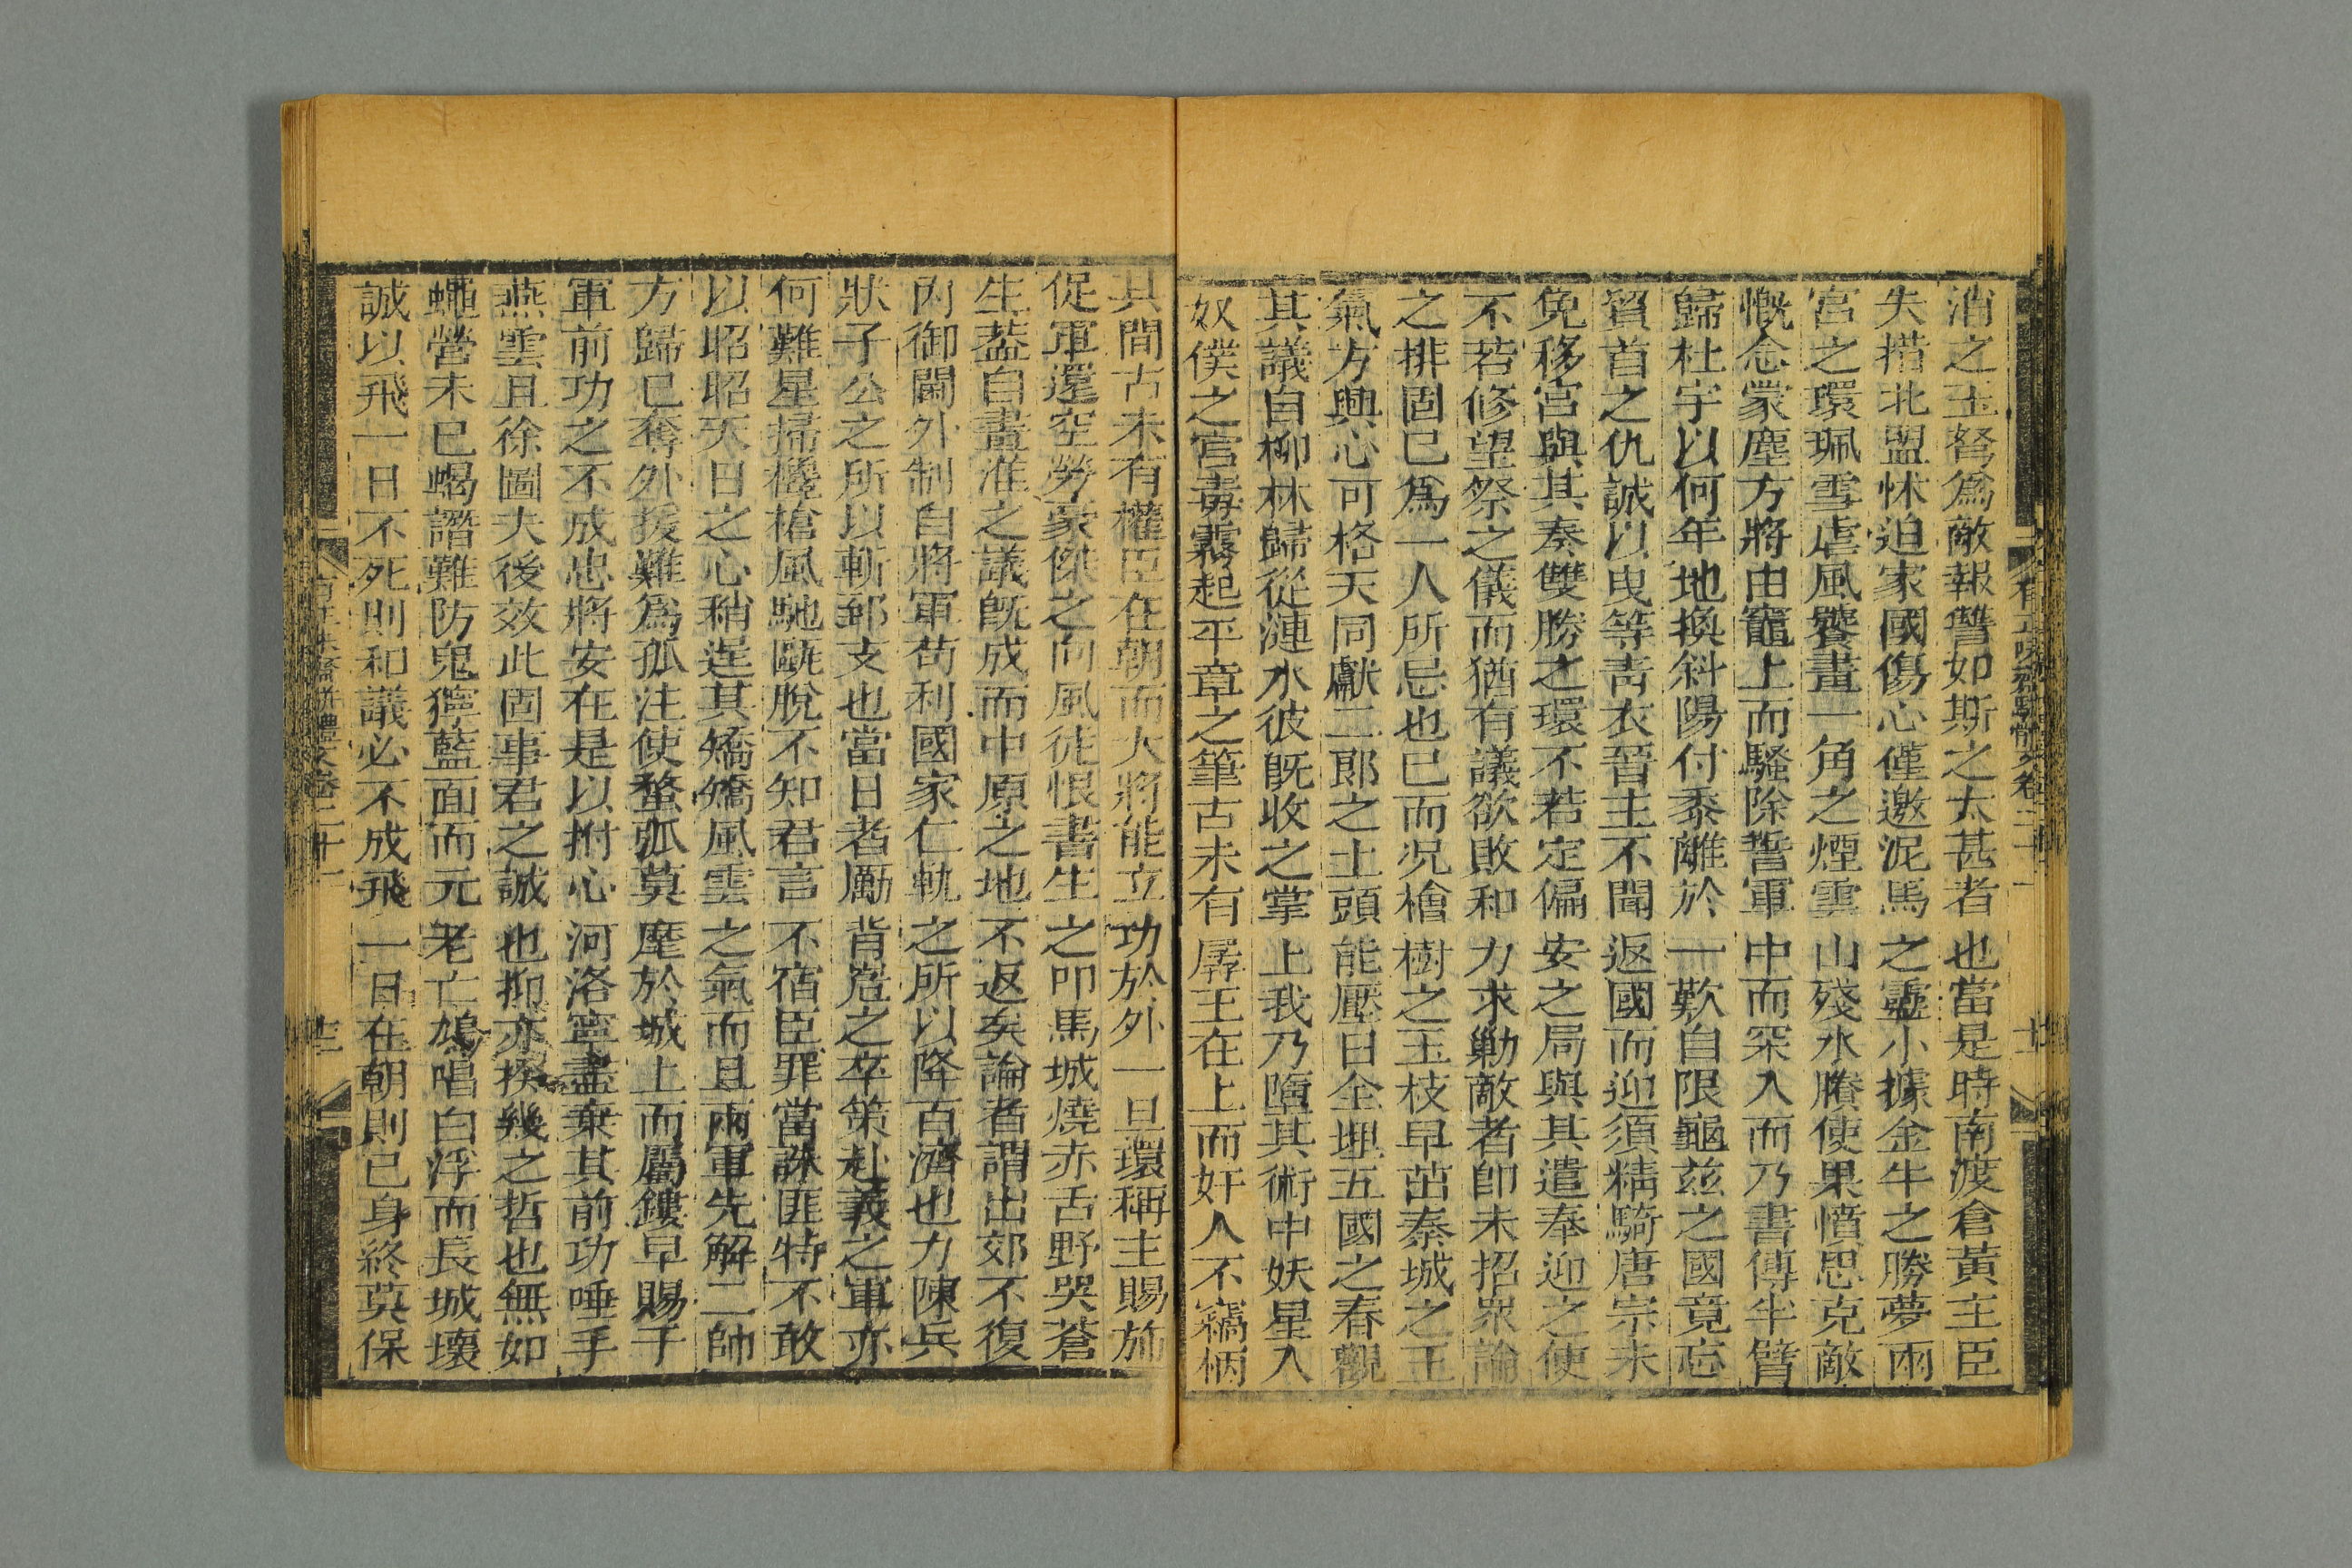 消之玉弩爲敵報讐如斯之太甚者也當是時南渡倉黃主臣
失措北盟怵迫家國傷心僅邀泥馬之靈小據金牛之勝夢雨
宮之環珮雪虐風饕畫一角之煙雲山殘水賸使果憤思克敵
慨念蒙塵方將由竈上而騷除誓軍中而深入而乃書傳半臂
歸杜宇以何年地換斜陽付黍離於一歎自限龜茲之國竟忘
質首之仇誠以曳等靑衣晉主不聞返國而迎須精騎唐宗未
免移宮與其奏雙勝之環不若定偏安之局與其遣奉迎之使
不若修望祭之儀而猶有議欲敗和力求勦敵者卽未招眾論
之排固已爲一人所忌也已而况檜樹之玉枝早茁秦城之王
氣方興心可格天同獻二郞之土頭能壓日全埋五國之春觀
其議自柳林歸從漣水彼旣收之掌上我乃墮其術中妖星入
奴僕之宮毒霧起平章之筆古未有孱王在上而奸人不竊柄
其間古未有權臣在朝而大將能立功於外一旦環稱主賜旆
促軍還空勞豪傑之向風徒恨書生之叩馬城燒赤舌野哭蒼
生葢自畫淮之議旣成而中原之地不返矣論者謂出郊不復
內御閫外制自將軍苟利國家仁軌之所以降百濟也力陳兵
狀子公之所以斬郅支也當日者勵背嵬之卒策赴義之軍亦
何難星掃欃槍風馳甌脫不知君言不宿臣罪當誅匪特不敢
以昭昭天日之心稍逞其矯矯風雲之氣而且兩軍先解二帥
方歸已奪外援難爲孤注使蝥弧莫麾於城上而屬鏤早賜于
軍前功之不成忠將安在是以拊心河洛寧盡棄其前功唾手
燕雲且徐圖夫後效此固事君之誠也抑亦揆幾之哲也無如
蠅營未已蝎譖難防鬼獰藍面而元老亡鴆唱白浮而長城壞
誠以飛一日不死則和議必不成飛一日在朝則已身終莫保